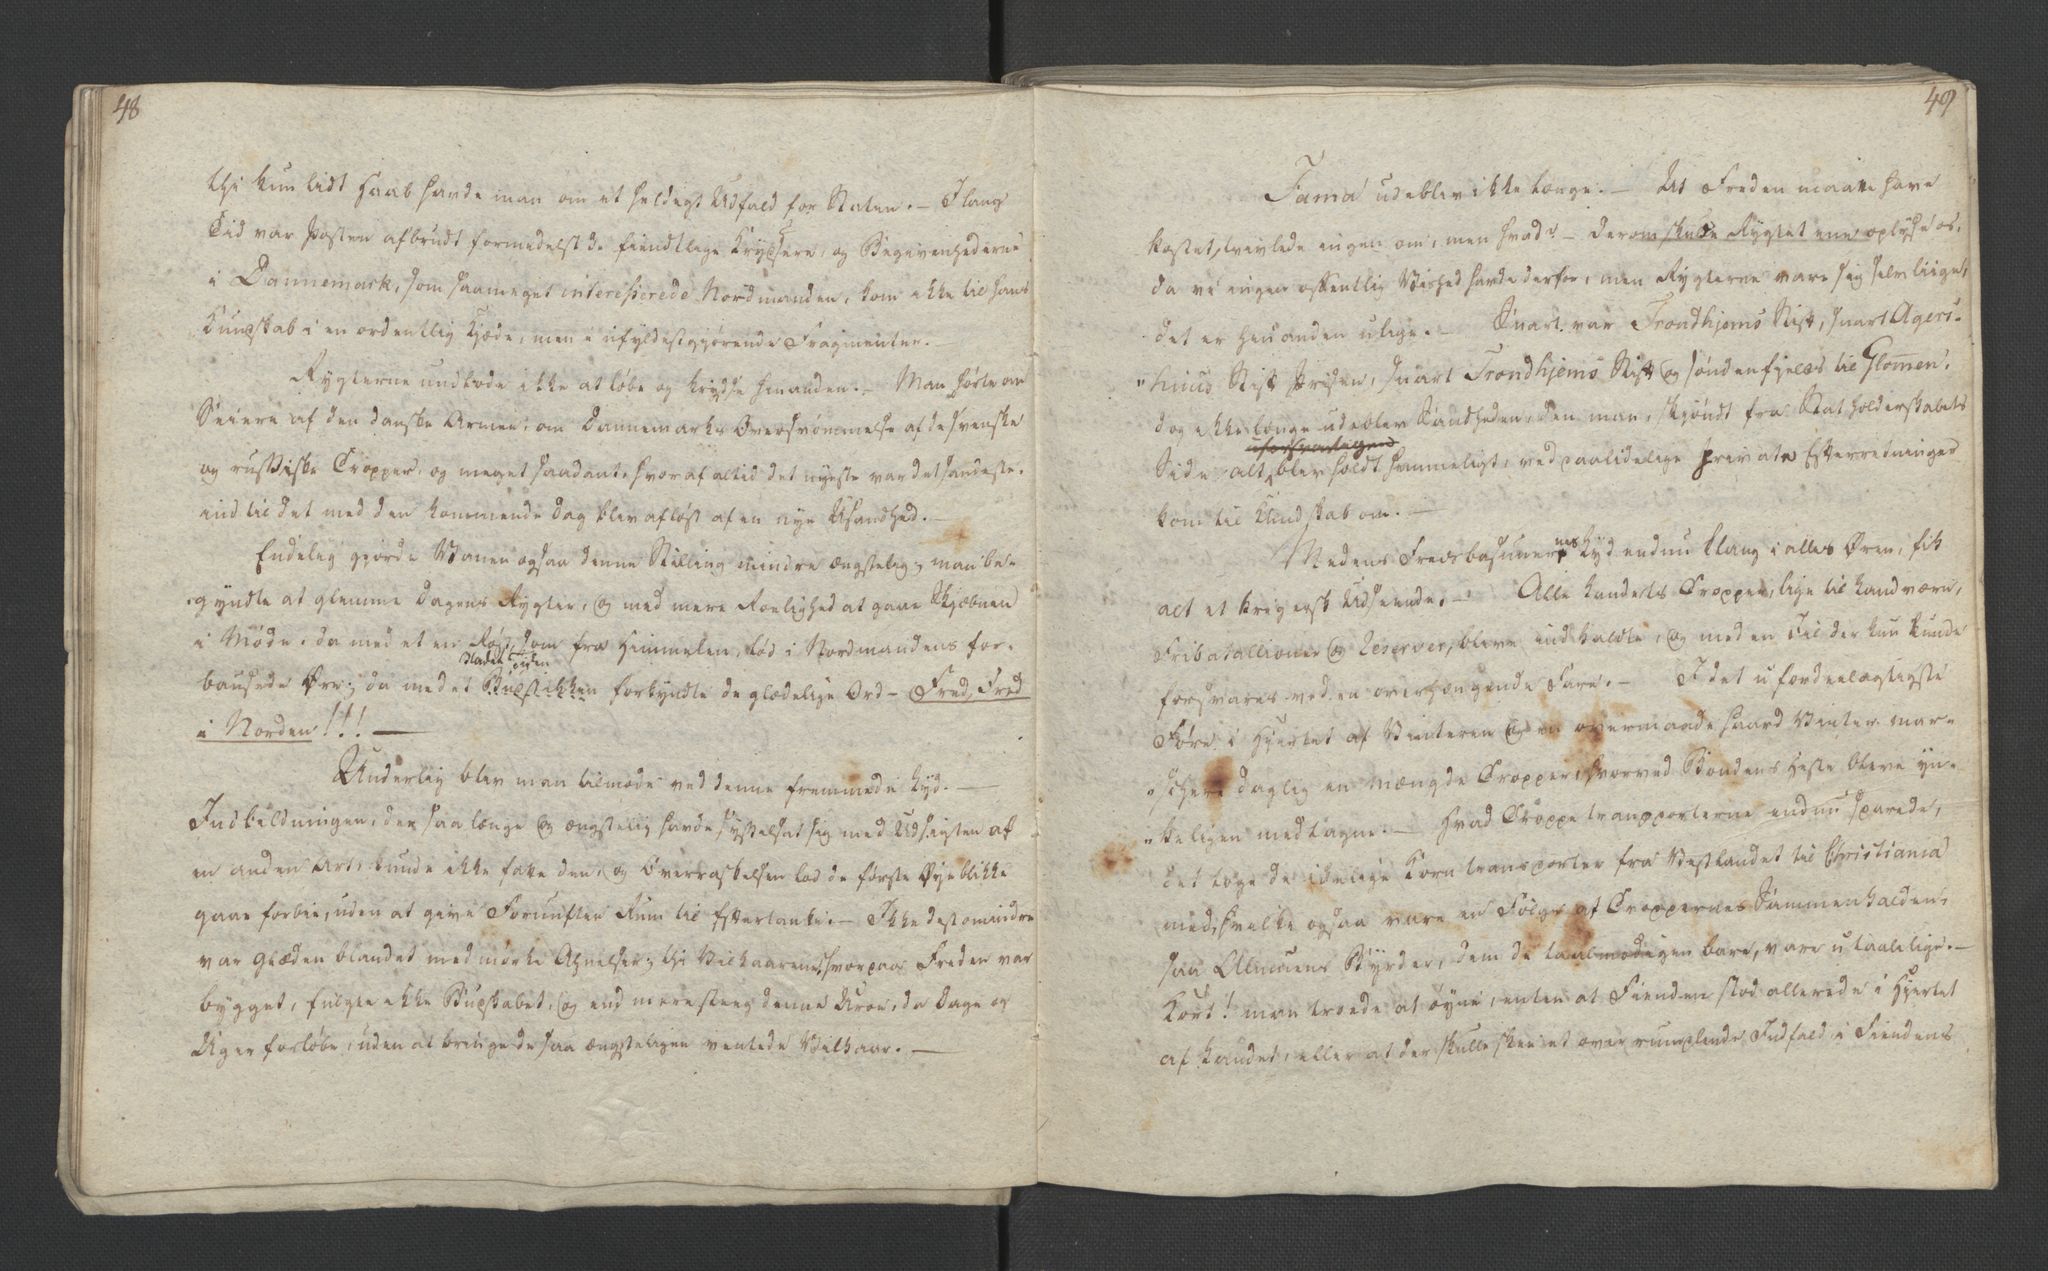 48
thi kun lidt Haab havde man om et heldigt Udfald for Staten. — I lang
Tid var Posten afbrudt formedelst de fiendtlige Krydsere, og Begivenhederne
i Dannemark, som saameget interesserede Nordmanden, kom ikke til hans
Kundskab i en ordentlig Kjæde, men i ufyldestgjørende Fragmenter. —
Rygterne undlode ikke at løbe og krydse hinanden. — Man hørte om
Seiere af den danske Armee, om Dannemarks Oversvømmelse af de svenske
og russiske Tropper, og meget saadant, hvoraf altid det nyeste var det sandeste,
indtil det med den kommende Dag blev afløst af en nye Usandhed. —
Endelig gjorde Vanen ogsaa denne Stilling mindre ængstelig; man be-
gyndte at glemme Dagens Rygter, og med mere Roelighed at gaae Skjebnen
i Møde, da med et en Røst, som fra Himmelen, lød i Nordmandens for-
bausede Øre; da med et Budstikken forkyndte de glædelige Ord — Fred, Fred
i Norden!!! —
Underlig blev man tilmode ved denne fremmede Lyd. —
Indbildningen, der saa længe og ængstelig havde sysselsat sig med Udsigten af
en anden Art, kunde ikke fatte den, og Overraskelsen lod de første Øjeblikke
gaae forbie, uden at give Fornuften Rum til Eftertanke. — Ikke destomindre
var Glæden blandet med mørke Ahnelser; thi Vilkaarene, hvorpaa Freden var
bygget, fulgte ikke Budskabet, og end mere steeg denne Uroe, da Dage og
Uger forløbe, uden at bringe de saa ængsteligen ventede Vilkaar. —
49
Fama udeblev ikke længe. — At Freden maatte have
kostet, tvivlede ingen om, men hvad? — derom skulde Rygtet ene oplyse os,
da vi ingen offentlig Vished havde derfor, men Rygterne vare sig selv liige,
det er hinanden ulige. — Snart var Trondhjems Stift, snart Agers-
"huus Stift Prisen, snart Trondhjems Stift og søndenfjelds til Glomen,
dog ikke længe udeblev Sandheden, den man, skjøndt fra Statholderskabets
Side alt blev holdt hemmeligt, ved paalidelige private Efterretninger
kom til Kundskab om. —
Medens Fredsbasunernes Lyd endnu klang i alles Øren, fik
alt et krigersk Udseende. — Alle Landets Tropper, lige til Landværn,
Fribatallioner og Reserver, bleve indkaldte, og med en Iil der kun kunde
forsvares ved en overhængende Fare. — I det ufordeelagtigste
Føre i Hjertet af Vinteren og en overmaade haard Vinter mar-
"schere daglig en Mængde Tropper, hvorved Bondens Heste bleve yn-
"keligen medtagne. — Hvad Troppetransporterne endnu sparede,
det toge de idelige Korntransporter fra Vestlandet til Christiania
med, hvilke ogsaa vare en Følge af Troppernes Sammenholden,
saa Almuens Byrder, dem de taalmodigen bare, vare utaalelige. —
Kort! man troede at øyne, enten at Fienden stod allerede i Hjertet
af Landet, eller at der skulle skee et overrumplende Indfald i Fiendens